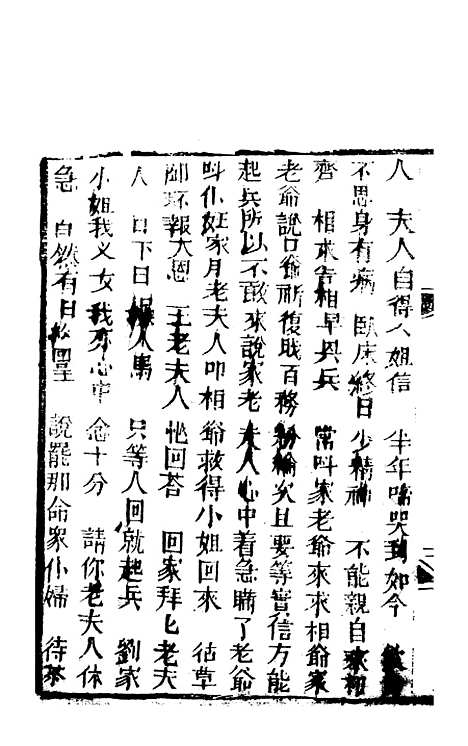 人　夫人自得小姐信　半年啼哭到如今
不思身有病　臥床終日少精神　不能親自來
齊　相求爺相早具兵　常叫家老爺來求相爺家
老爺說只爺祈復戝百務紛輪欠且要等實信方能
起兵所以不敢來說家老夫人心中着急瞞了老爺
叫仆妊家月老夫人叩相爺救得小姐回來　估草
啣环報大恩　王老夫人忙回荅　回家拜匕老夫
人　日下日人馬　只等人回就起兵　劉家
小姐我义女我亦心中念十分　請你老夫人休
急　自然有日　說罷那命眾仆婦　待